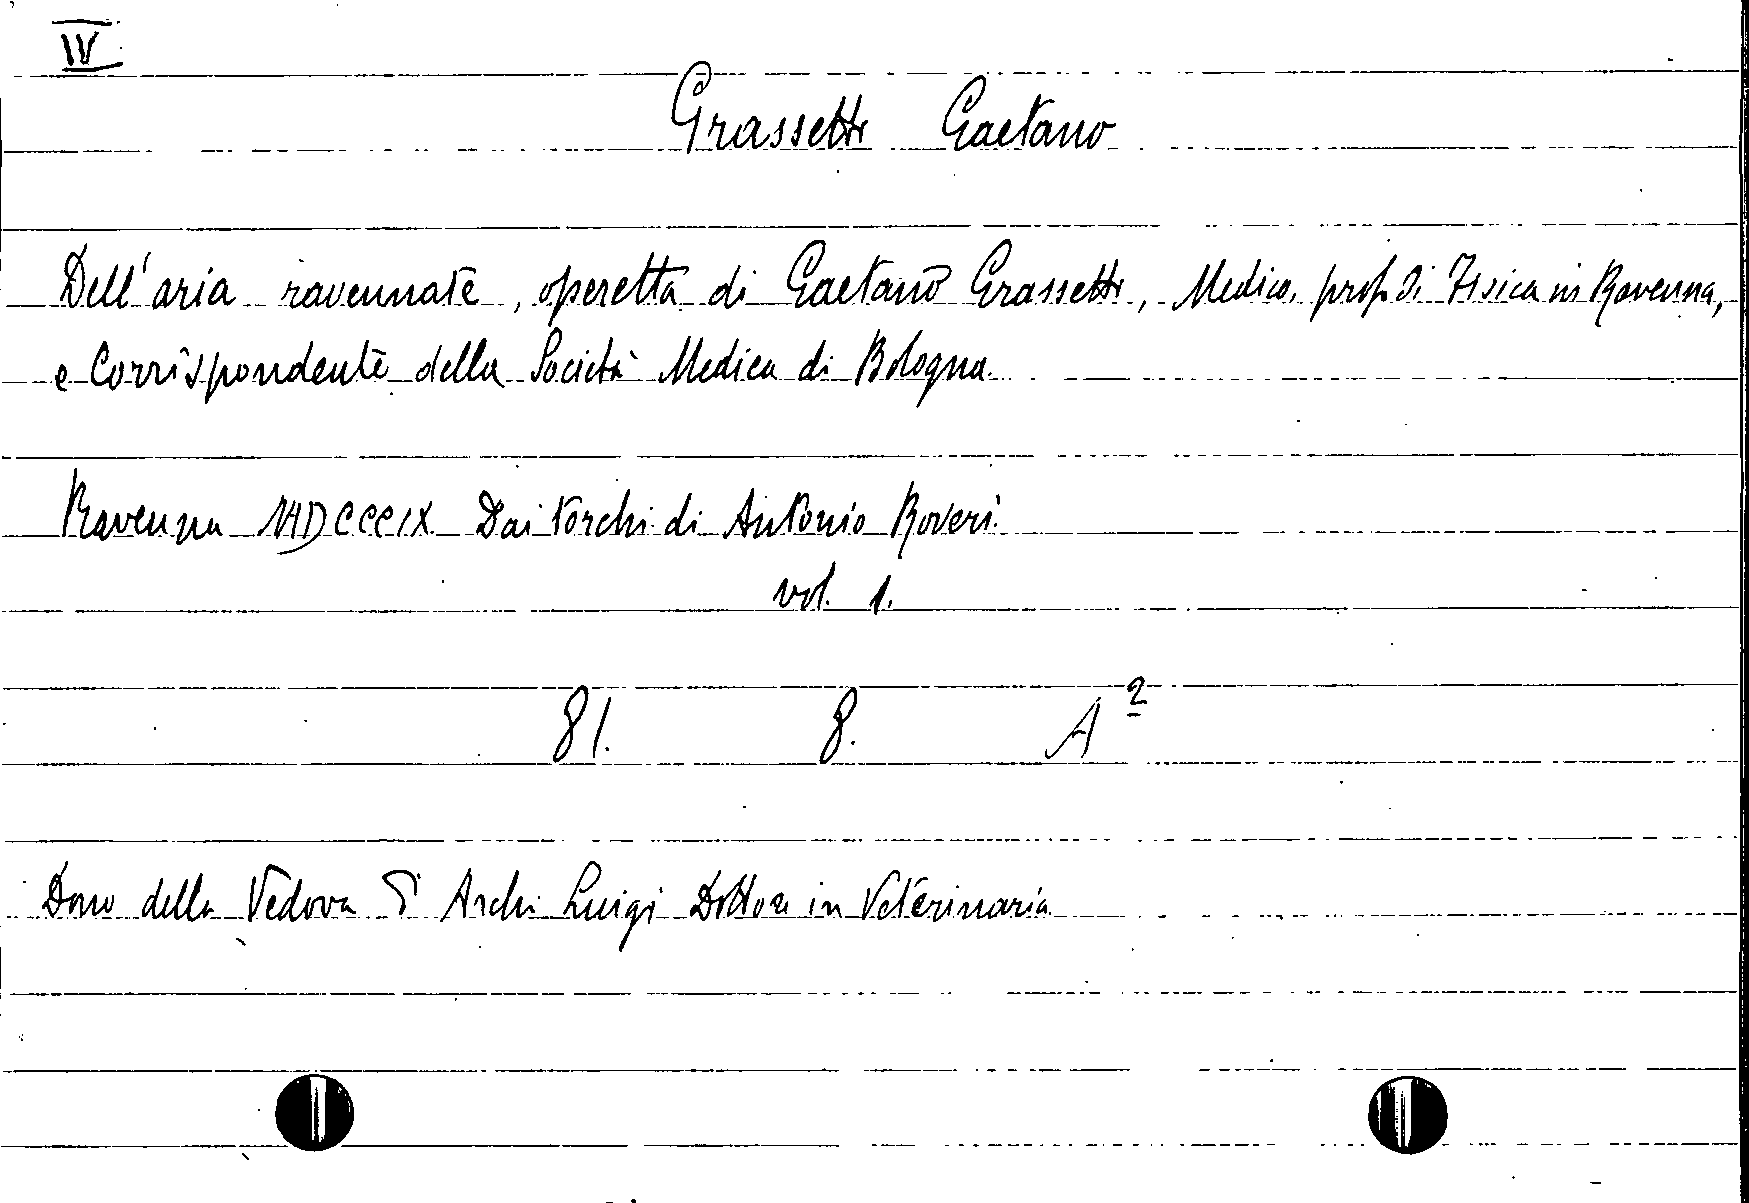 IV
Grassetti Gaetano
Dell'aria ravennate, operetta di Gaetano Grassetti, Medico, prof. di Fisica in Ravenna,
e Corrispondente della Società Medica di Bologna.
Ravenna MDCCCIX Dai torchi di Antonio Roveri.
vol. 1.
81. 8. A 2
Dono della Vedova Archi Luigi Dottore in Veterinaria